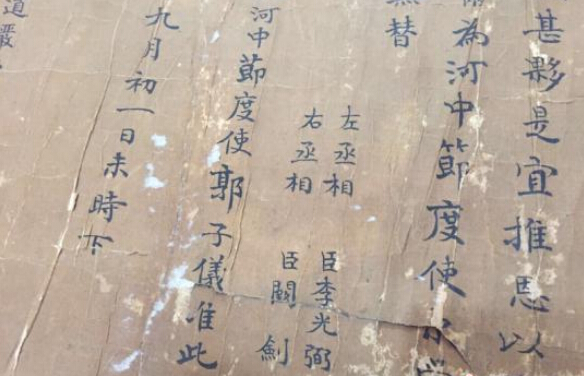 甚夥是宜推恩以
為河中節度使
替
左丞相 臣李光弼
右丞相 臣闕劍
河中節度使郭子儀准此
九月初一日未時下
道嚴